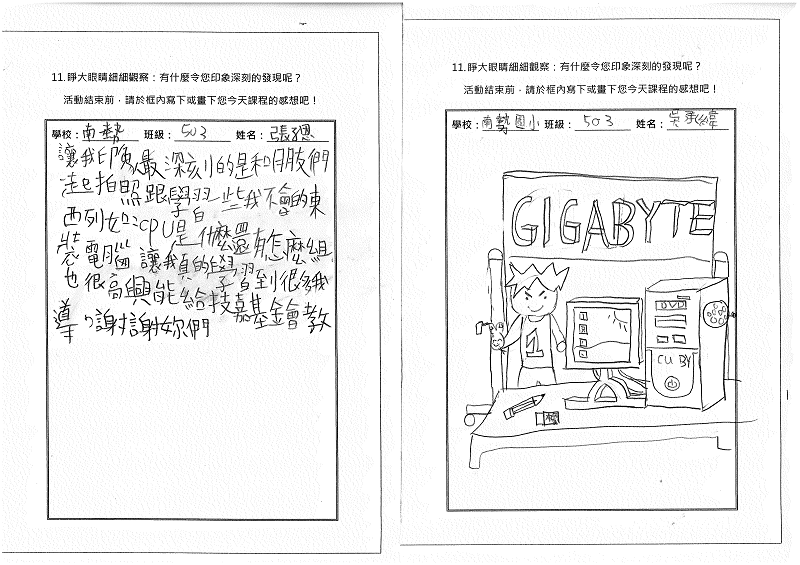 11.睜大眼睛細細觀察：有什麼令您印象深刻的發現呢？
活動結束前，請於框內寫下或畫下您今天課程的感想吧！
學校：南勢 班級：503 姓名：張
讓我印象最深刻的是和朋友們
一起拍照跟學習一些我不會的東
西列如：CPU是什麼還有怎麼組
裝電腦 讓我真的學習到很多我
也很高興能給技嘉基金會教
導，謝謝妳們
11.睜大眼睛細細觀察：有什麼令您印象深刻的發現呢？
活動結束前，請於框內寫下或畫下您今天課程的感想吧！
學校：南勢國小 班級：503 姓名：吳承緯
GIGABYTE
DVD
CU BY
1